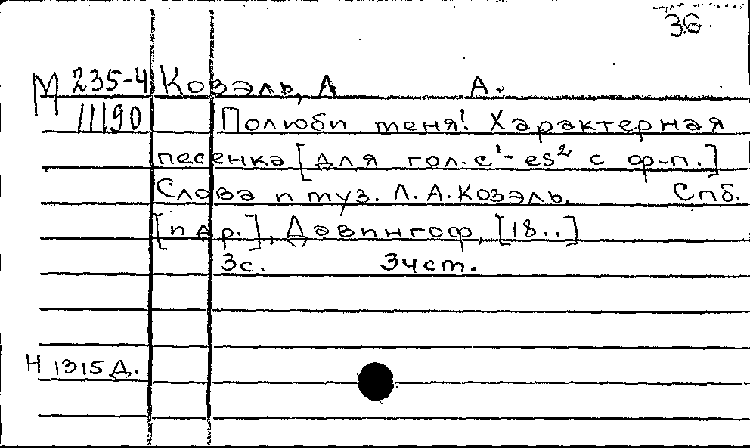 36
М 235-4 Козэль, Л А.
11190 Полюби меня! Характерная
песенка [для гол. c¹-es² с ф-п.]
Слова и муз. Л. А. Козэль. Спб.
[и др.], Давингоф, [18..]
3с. 3чст.
Н 1315 Д.